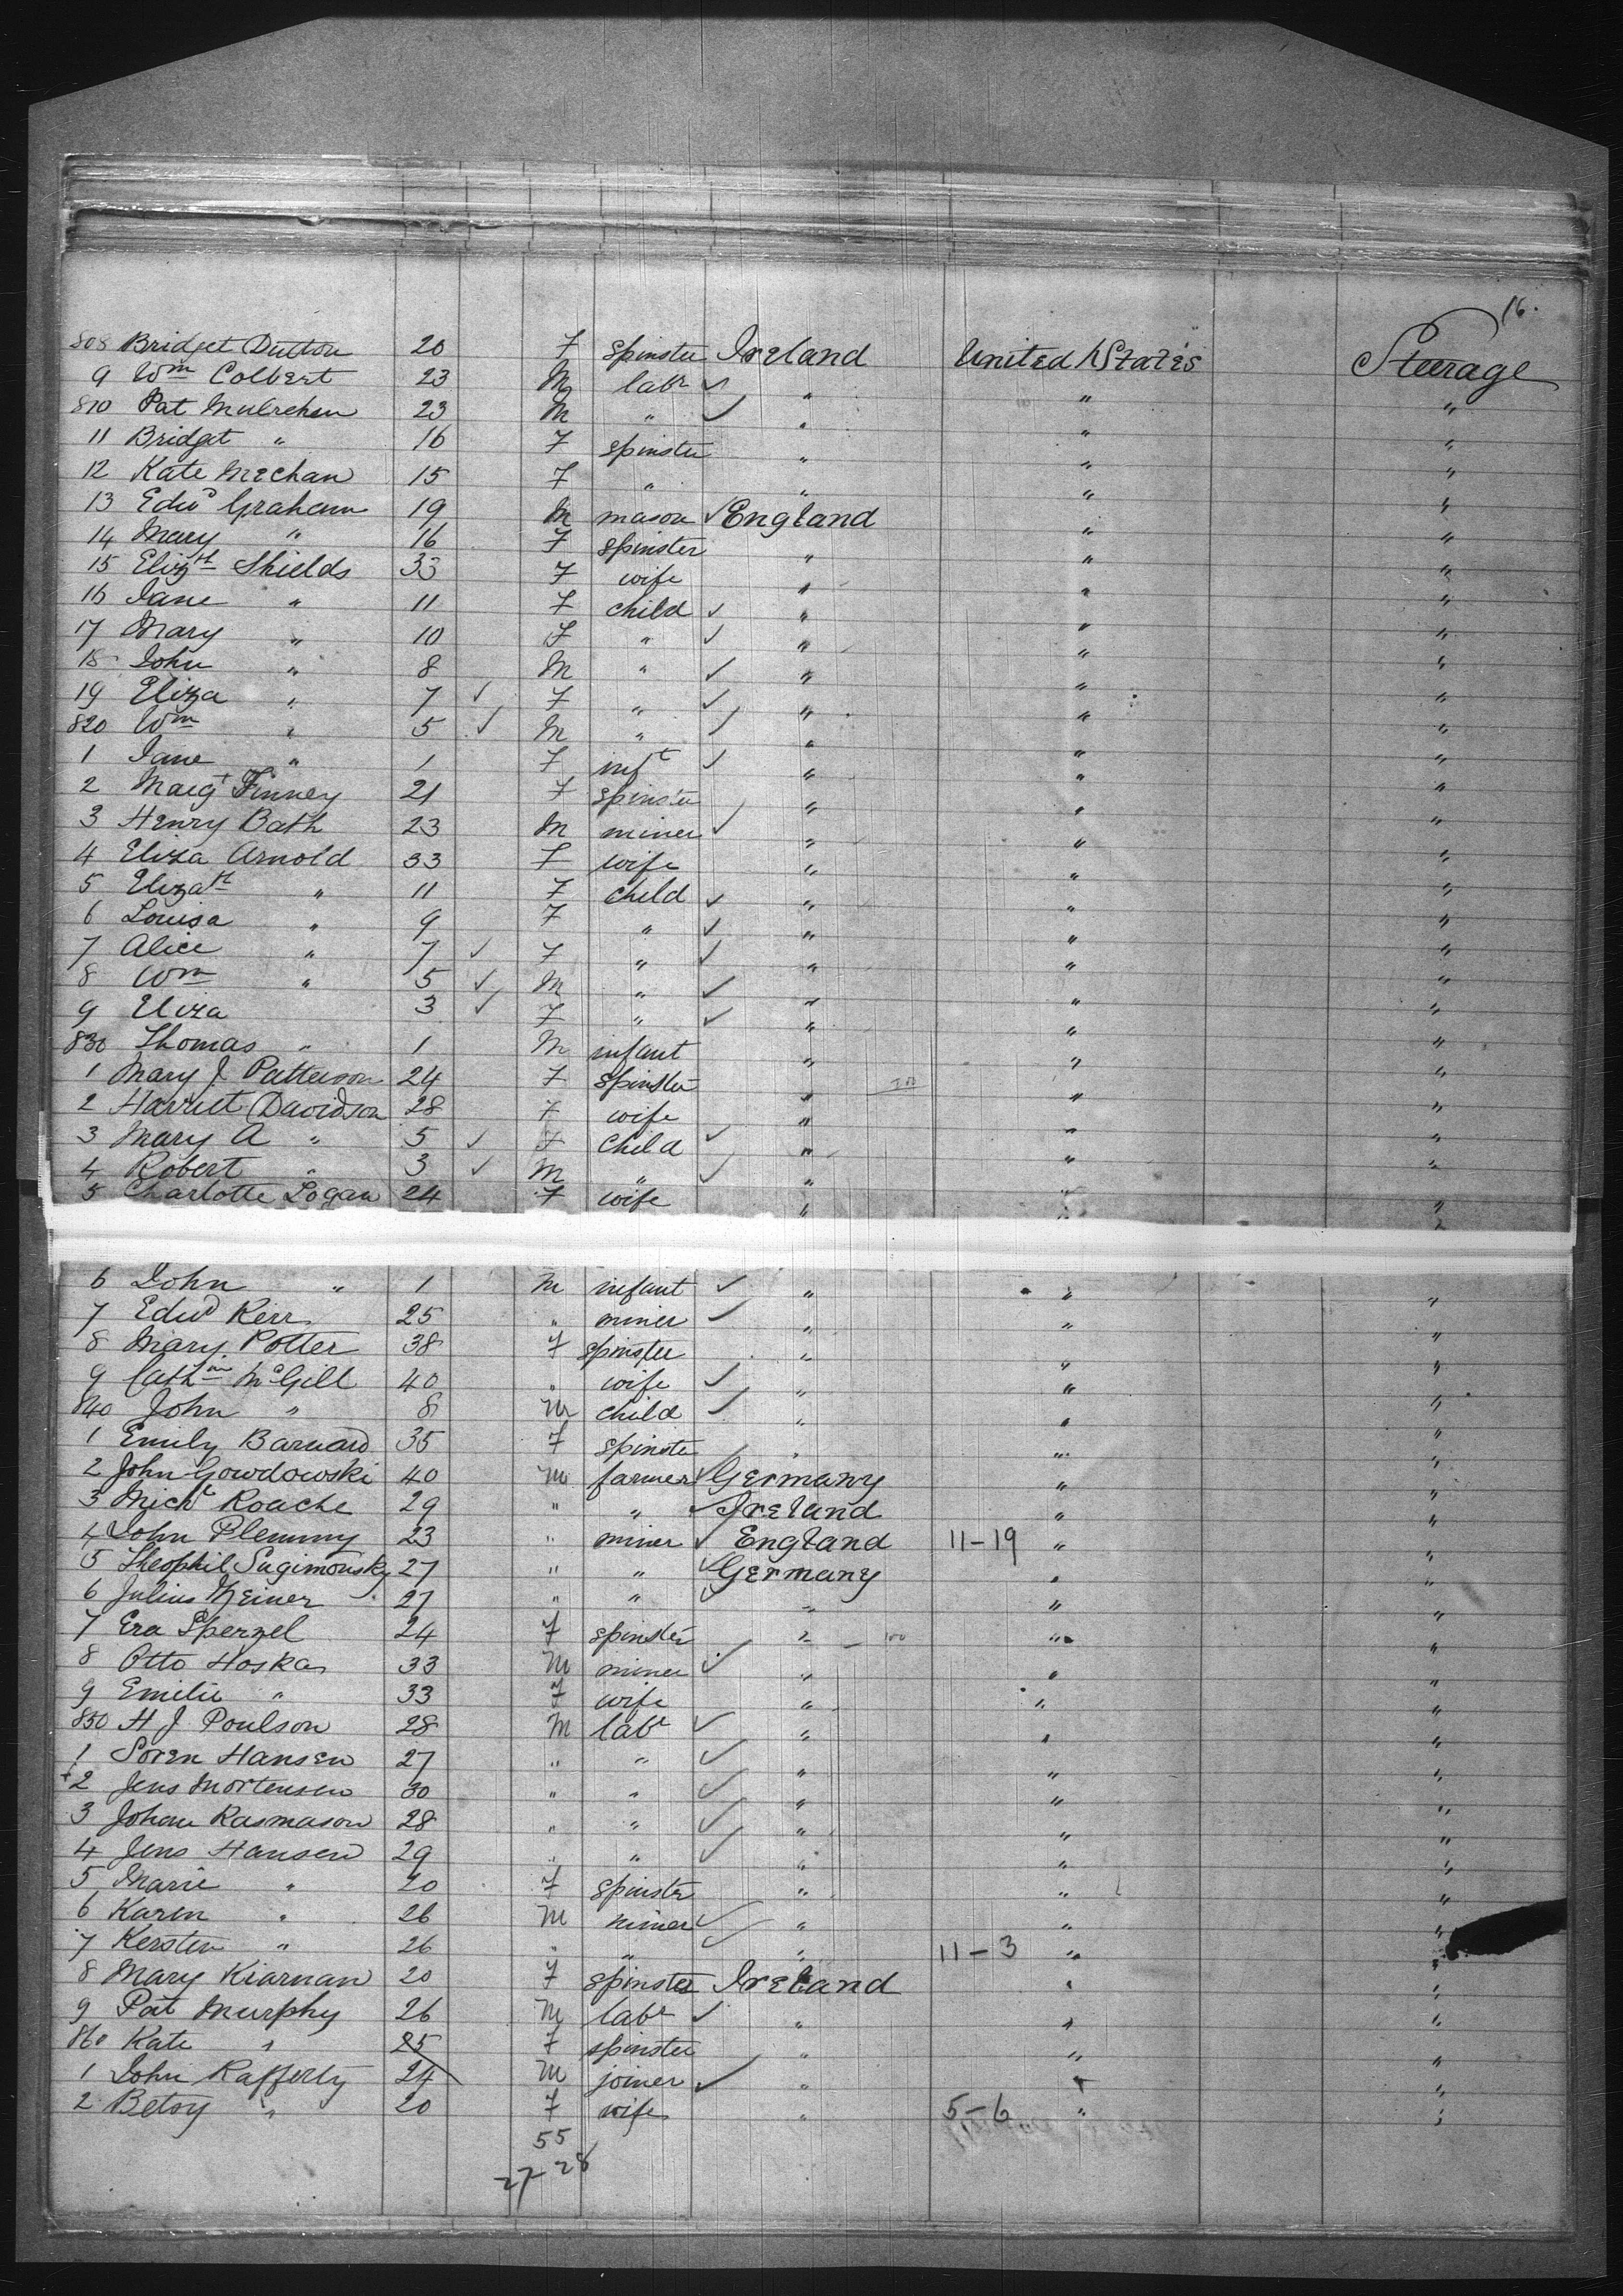 16.
808 Bridget Dutton 20 F spinster Ireland United States Steerage
9 Wm Colbert 23 M labr ✓ " " "
810 Pat Mulrehan 23 M " ✓ " " "
11 Bridget " 16 F spinster " " "
12 Kate Mechan 15 F " " " "
13 Edwd Graham 19 M mason ✓ England " "
14 Mary " 16 F spinster " " "
15 Elizth Shields 33 F wife " " "
16 Jane " 11 F child ✓ " " "
17 Mary " 10 F " ✓ " " "
18 John " 8 M " ✓ " " "
19 Eliza " 7 ✓ F " ✓ " " "
820 Wm " 5 ✓ M " ✓ " " "
1 Jane " 1 F inft ✓ " " "
2 Margt Finney 21 F spinster " " "
3 Henry Bath 23 M miner ✓ " " "
4 Eliza Arnold 33 F wife " " "
5 Elizath " 11 F child ✓ " " "
6 Louisa " 9 F " ✓ " " "
7 Alice " 7 ✓ F " ✓ " " "
8 Wm " 5 ✓ M " ✓ " " "
9 Eliza 3 ✓ F " ✓ " " "
830 Thomas " 1 M infant " " "
1 Mary J. Patterson 24 F spinster " " "
2 Harriet Davidson 28 F wife " " "
3 Mary A " 5 ✓ F child ✓ " " "
4 Robert " 3 ✓ M " ✓ " " "
5 Charlotte Logan 24 F wife " " "
6 John " 1 M infant ✓ " " "
7 Edwd Kerr 25 " miner ✓ " " "
8 Mary Potter 38 F spinster " " "
9 Cathne McGill 40 " wife ✓ " " "
840 John " 8 M child ✓ " " "
1 Emily Barnard 35 F spinster " " "
2 John Gowdowski 40 M farmer ✓ Germany " "
3 Michl Roache 29 " " ✓ Ireland " "
4 John Plemmy 23 " miner ✓ England 11-19 " "
5 Theophil Sugimonsky 27 " " ✓ Germany " "
6 Julius Meiner 27 " " ✓ " " "
7 Era Sperzel 24 F spinster " 100 " "
8 Otto Hoska 33 M miner ✓ " " "
9 Emilie " 33 F wife " " "
850 H J Poulson 28 M labr ✓ " " "
1 Soren Hansen 27 " " ✓ " " "
+2 Jens Mortensen 30 " " ✓ " " "
3 Johan Rasmason 28 " " ✓ " " "
4 Jens Hansen 29 " " ✓ " " "
5 Marie " 20 F spinster " " "
6 Karen " 26 M miner ✓ " " "
7 Kersten " 26 " " ✓ " 11-3 " "
8 Mary Kiarnan 20 F spinster Ireland " "
9 Pat Murphy 26 M labr ✓ " " "
860 Kate " 25 F spinster " " "
1 John Rafferty 24 M joiner ✓ " " "
2 Betsy " 20 F wife " 5-6 " "
55
27-28